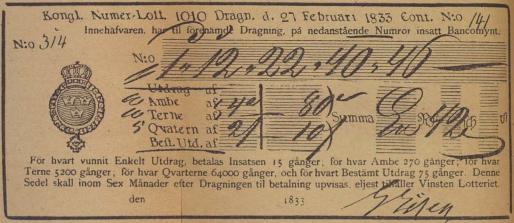 Kongl. Numer-Lott. 1010 Dragn. d. 27 Februari 1833 Cont. N:o 141
N:o 314
Innehafvaren, har til förenämde Dragning, på nedanstående Numror insatt Bancomynt.
N:o
1. 12. 22. 40. 46
Utdrag af
10 Ambe af
10 Terne af
5 Qvatern af
Best. Utd. af
Summa
För hvart vunnit Enkelt Utdrag, betalas Insatsen 15 gånger; för hvar Ambe 270 gånger; för hvar
Terne 5200 gånger; för hvar Qvarterne 64000 gånger, och för hvart Bestämt Utdrag 75 gånger. Denne
Sedel skall inom Sex Månader efter Dragningen til betalning upvisas, eljest tilfaller Vinsten Lotteriet.
den 1833